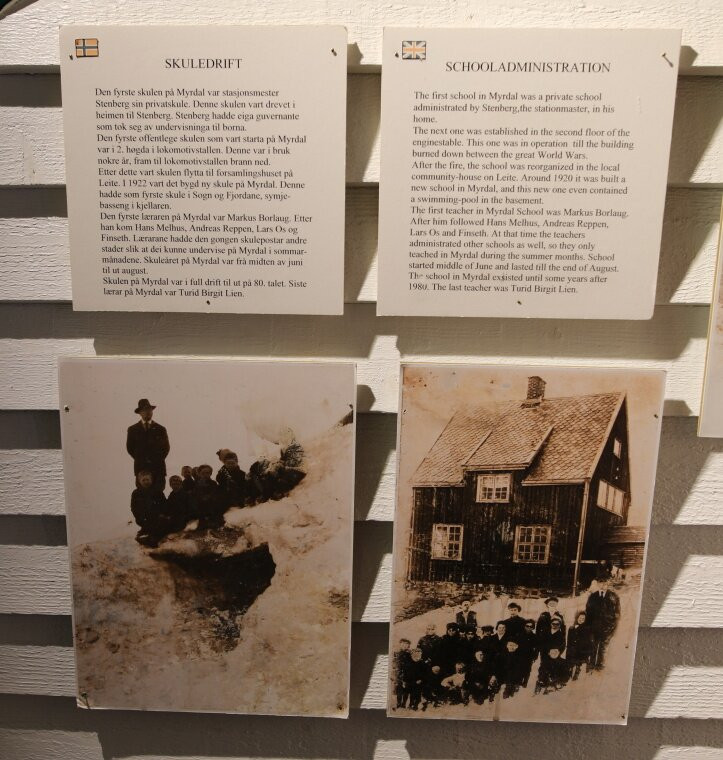 SKULEDRIFT
Den fyrste skulen på Myrdal var stasjonsmester
Stenberg sin privatskule. Denne skulen vart drevet i
heimen til Stenberg. Stenberg hadde eiga guvernante
som tok seg av undervisninga til borna.
Den fyrste offentlege skulen som vart starta på Myrdal
var i 2. høgda i lokomotivstallen. Denne var i bruk
nokre år, fram til lokomotivstallen brann ned.
Etter dette vart skulen flytta til forsamlingshuset på
Leite. I 1922 vart det bygd ny skule på Myrdal. Denne
hadde som fyrste skule i Sogn og Fjordane, symje-
basseng i kjellaren.
Den fyrste læraren på Myrdal var Markus Borlaug. Etter
han kom Hans Melhus, Andreas Reppen, Lars Os og
Finseth. Lærarane hadde den gongen skulepostar andre
stader slik at dei kunne undervise på Myrdal i sommar-
månadene. Skuleåret på Myrdal var frå midten av juni
til ut august.
Skulen på Myrdal var i full drift til ut på 80. talet. Siste
lærar på Myrdal var Turid Birgit Lien.
SCHOOLADMINISTRATION
The first school in Myrdal was a private school
administrated by Stenberg,the stationmaster, in his
home.
The next one was established in the second floor of the
enginestable. This one was in operation till the building
burned down between the great World Wars.
After the fire, the school was reorganized in the local
community-house on Leite. Around 1920 it was built a
new school in Myrdal, and this new one even contained
a swimming-pool in the basement.
The first teacher in Myrdal School was Markus Borlaug.
After him followed Hans Melhus, Andreas Reppen,
Lars Os and Finseth. At that time the teachers
administrated other schools as well, so they only
teached in Myrdal during the summer months. School
started middle of June and lasted till the end of August.
The school in Myrdal existed until some years after
1980. The last teacher was Turid Birgit Lien.